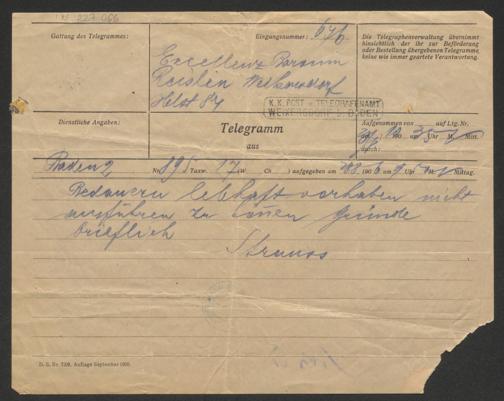 IN 227.066
Gattung des Telegrammes:
Eingangsnummer: 646
Die Telegraphenverwaltung übernimmt
hinsichtlich der ihr zur Beförderung
oder Bestellung übergebenen Telegramme
keine wie immer geartete Verantwortung.
Excellenz Baronin
Weikersdorf
K. K. POST u. TELEGRAFENAMT
WEIKERSDORF b. BADEN
Dienstliche Angaben:
Telegramm
aus
Aufgenommen von auf Ltg. Nr.
190 Uhr M. Mitt.
durch:
Baden 2
Nr. 895 Taxw. 17 (W Ch ) aufgegeben am 28/8 190 6 um 9 Uhr M. Mittag.
Bedauern lebhaft vorhaben nicht
ausführen zu können Gründe
brieflich
Strauss
D. S. Nr. 729. Auflage September 1905.